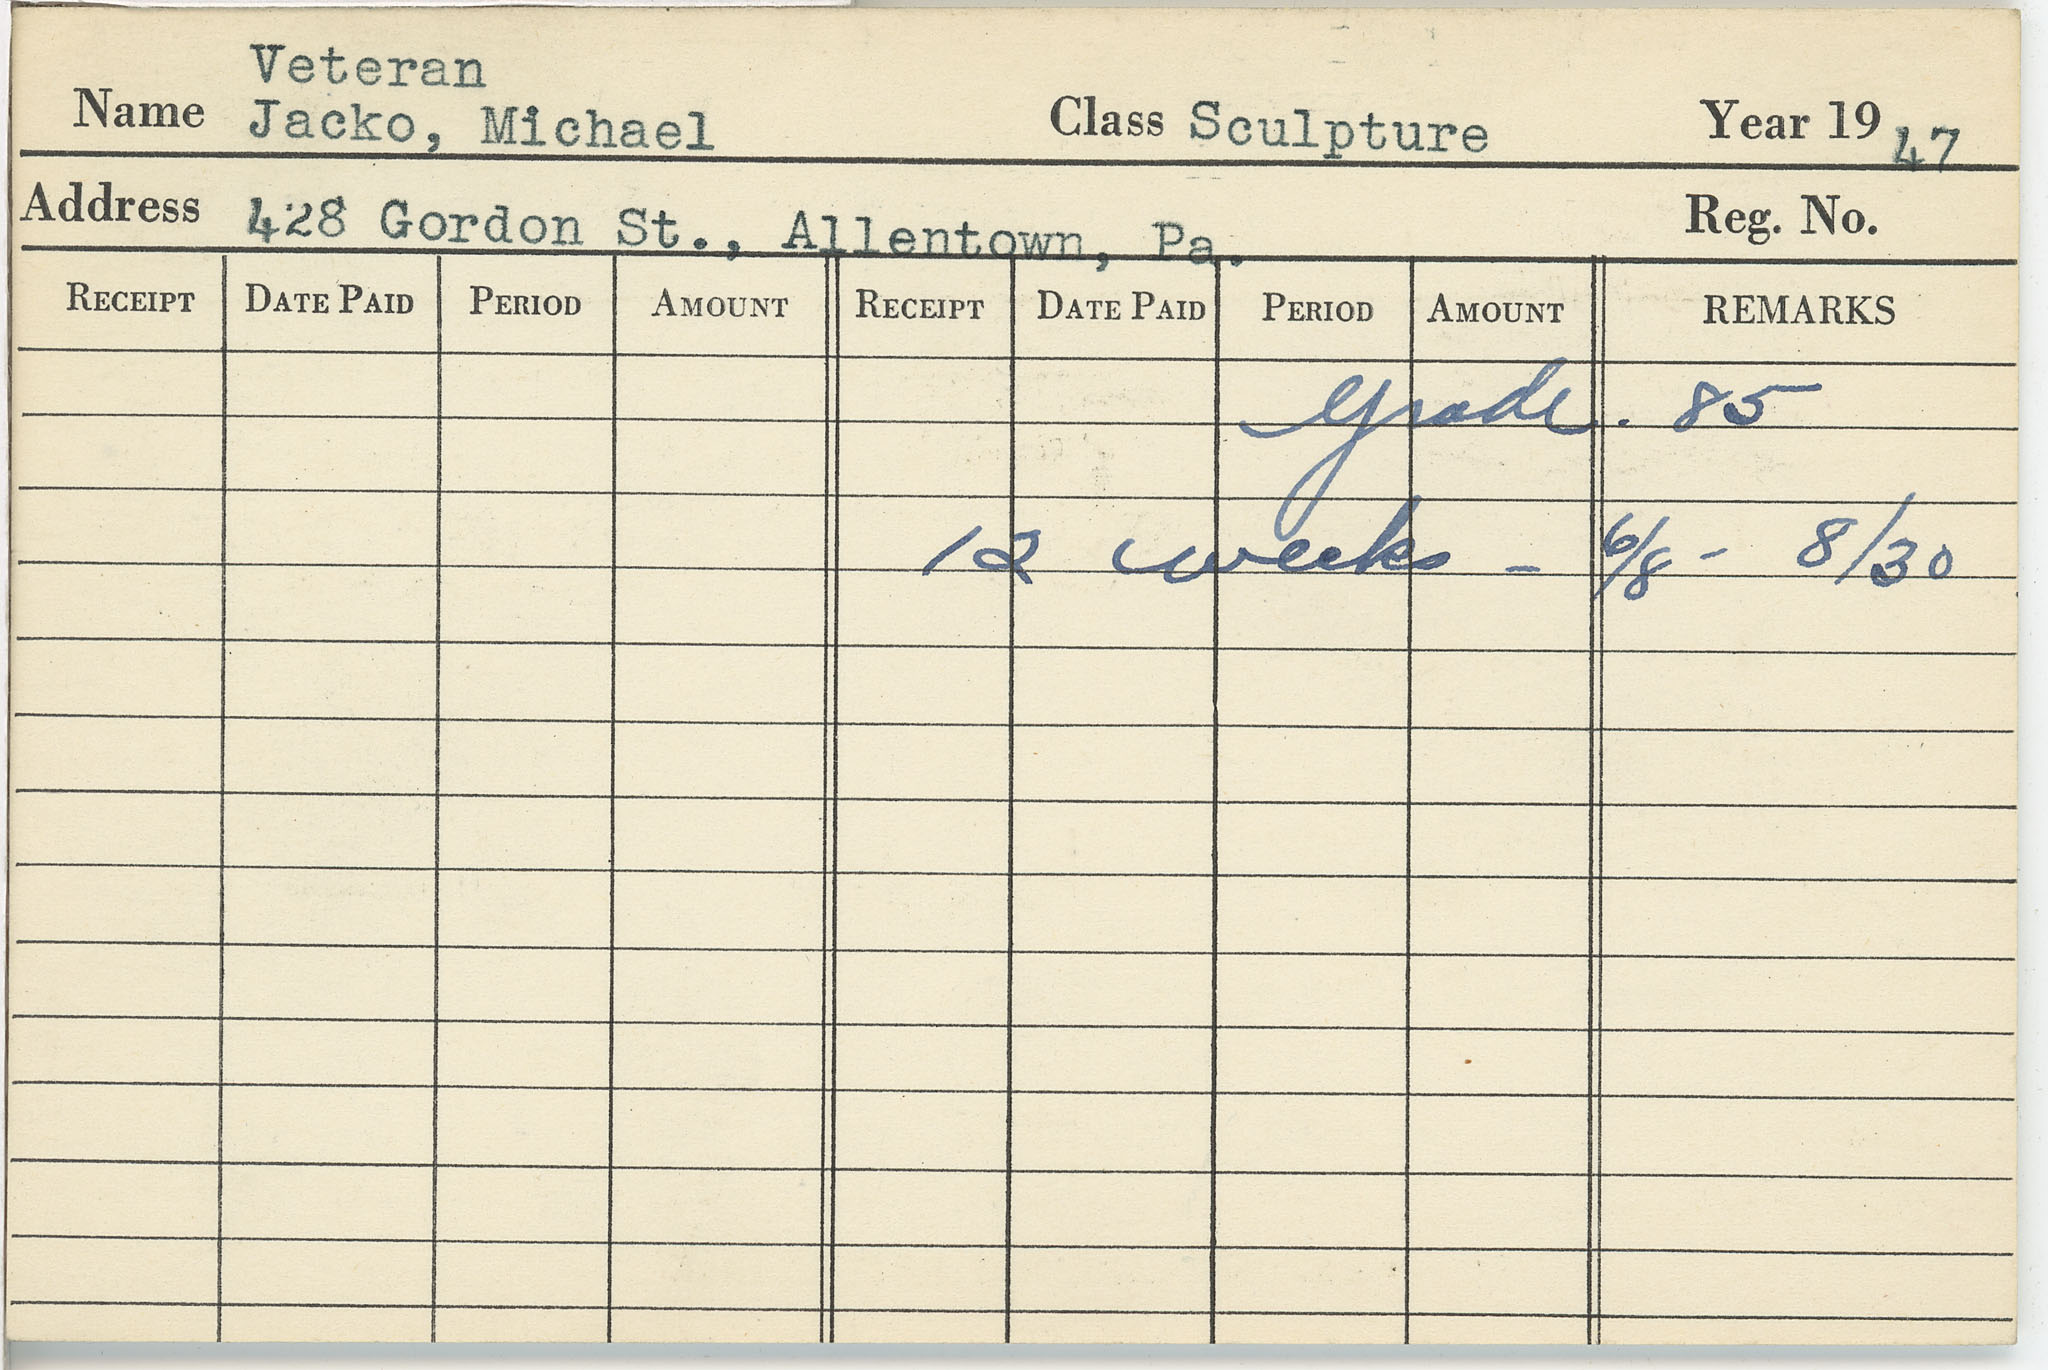 Veteran
Name Jacko, Michael Class Sculpture Year 1947
Address 428 Gordon St., Allentown, Pa. Reg. No.
RECEIPT DATE PAID PERIOD AMOUNT RECEIPT DATE PAID PERIOD AMOUNT REMARKS
Grade. 85
12 weeks - 6/8 - 8/30